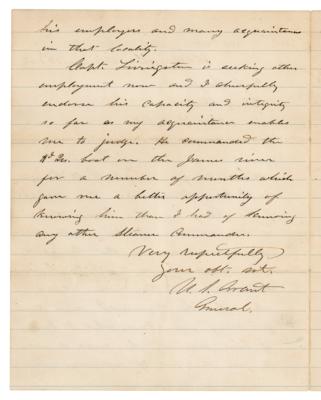 his employers and many acquaintances
in that locality.
Capt. Livingston is seeking other
employment now and I cheerfully
endorse his capacity and integrity
so far as my acquaintance enables
me to judge. He commanded the
Hd Qrs. boat on the James river
for a number of months which
gave me a better opportunity of
knowing him than I had of knowing
any other Steamer Commander.
Very respectfully
your obt. svt.
U. S. Grant
General.